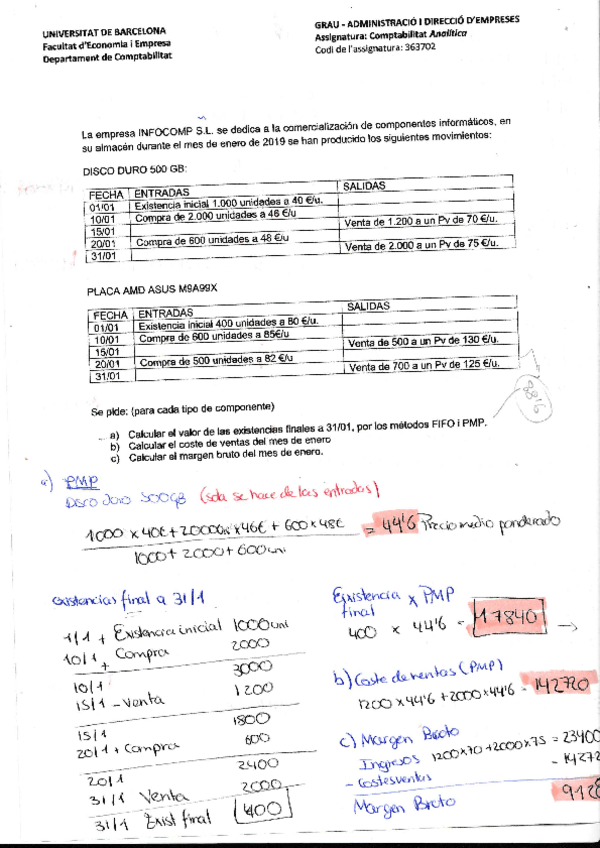 UNIVERSITAT DE BARCELONA
Facultat d'Economia i Empresa
Departament de Comptabilitat
GRAU - ADMINISTRACIÓ I DIRECCIÓ D'EMPRESES
Assignatura: Comptabilitat Analítica
Codi de l'assignatura: 363702
La empresa INFOCOMP S.L. se dedica a la comercialización de componentes informáticos, en
su almacén durante el mes de enero de 2019 se han producido los siguientes movimientos:
DISCO DURO 500 GB:
FECHA ENTRADAS SALIDAS
01/01 Existencia inicial 1.000 unidades a 40 €/u.
10/01 Compra de 2.000 unidades a 46 €/u
15/01 Venta de 1.200 a un Pv de 70 €/u.
20/01 Compra de 600 unidades a 48 €/u
31/01 Venta de 2.000 a un Pv de 75 €/u.
PLACA AMD ASUS M9A99X
FECHA ENTRADAS SALIDAS
01/01 Existencia inicial 400 unidades a 80 €/u.
10/01 Compra de 600 unidades a 85€/u
15/01 Venta de 500 a un Pv de 130 €/u.
20/01 Compra de 500 unidades a 82 €/u
31/01 Venta de 700 a un Pv de 125 €/u.
88'6
Se pide: (para cada tipo de componente)
a) Calcular el valor de las existencias finales a 31/01, por los métodos FIFO i PMP.
b) Calcular el coste de ventas del mes de enero
c) Calcular el margen bruto del mes de enero.
a) PMP
Disco Duro 500GB (solo se hace de las entradas)
1000 x 40€ + 2000 x 46€ + 600 x 48€ = 44'6 Precio medio ponderado
1000 + 2000 + 600 uni
existencias final a 31/1
1/1 + Existencia inicial 1000 uni
10/1 + Compra 2000
3000
10/1
15/1 - Venta 1200
1800
15/1
20/1 + Compra 600
2400
20/1
31/1 Venta 2000
31/1 Exist final 400
Existencia final x PMP
400 x 44'6 = 17840 →
b) Coste de ventas (PMP)
1200 x 44'6 + 2000 x 44'6 = 142720
c) Margen Bruto
Ingresos 1200 x 70 + 2000 x 75 = 23400
- Costes ventas - 14272
Margen Bruto 9128